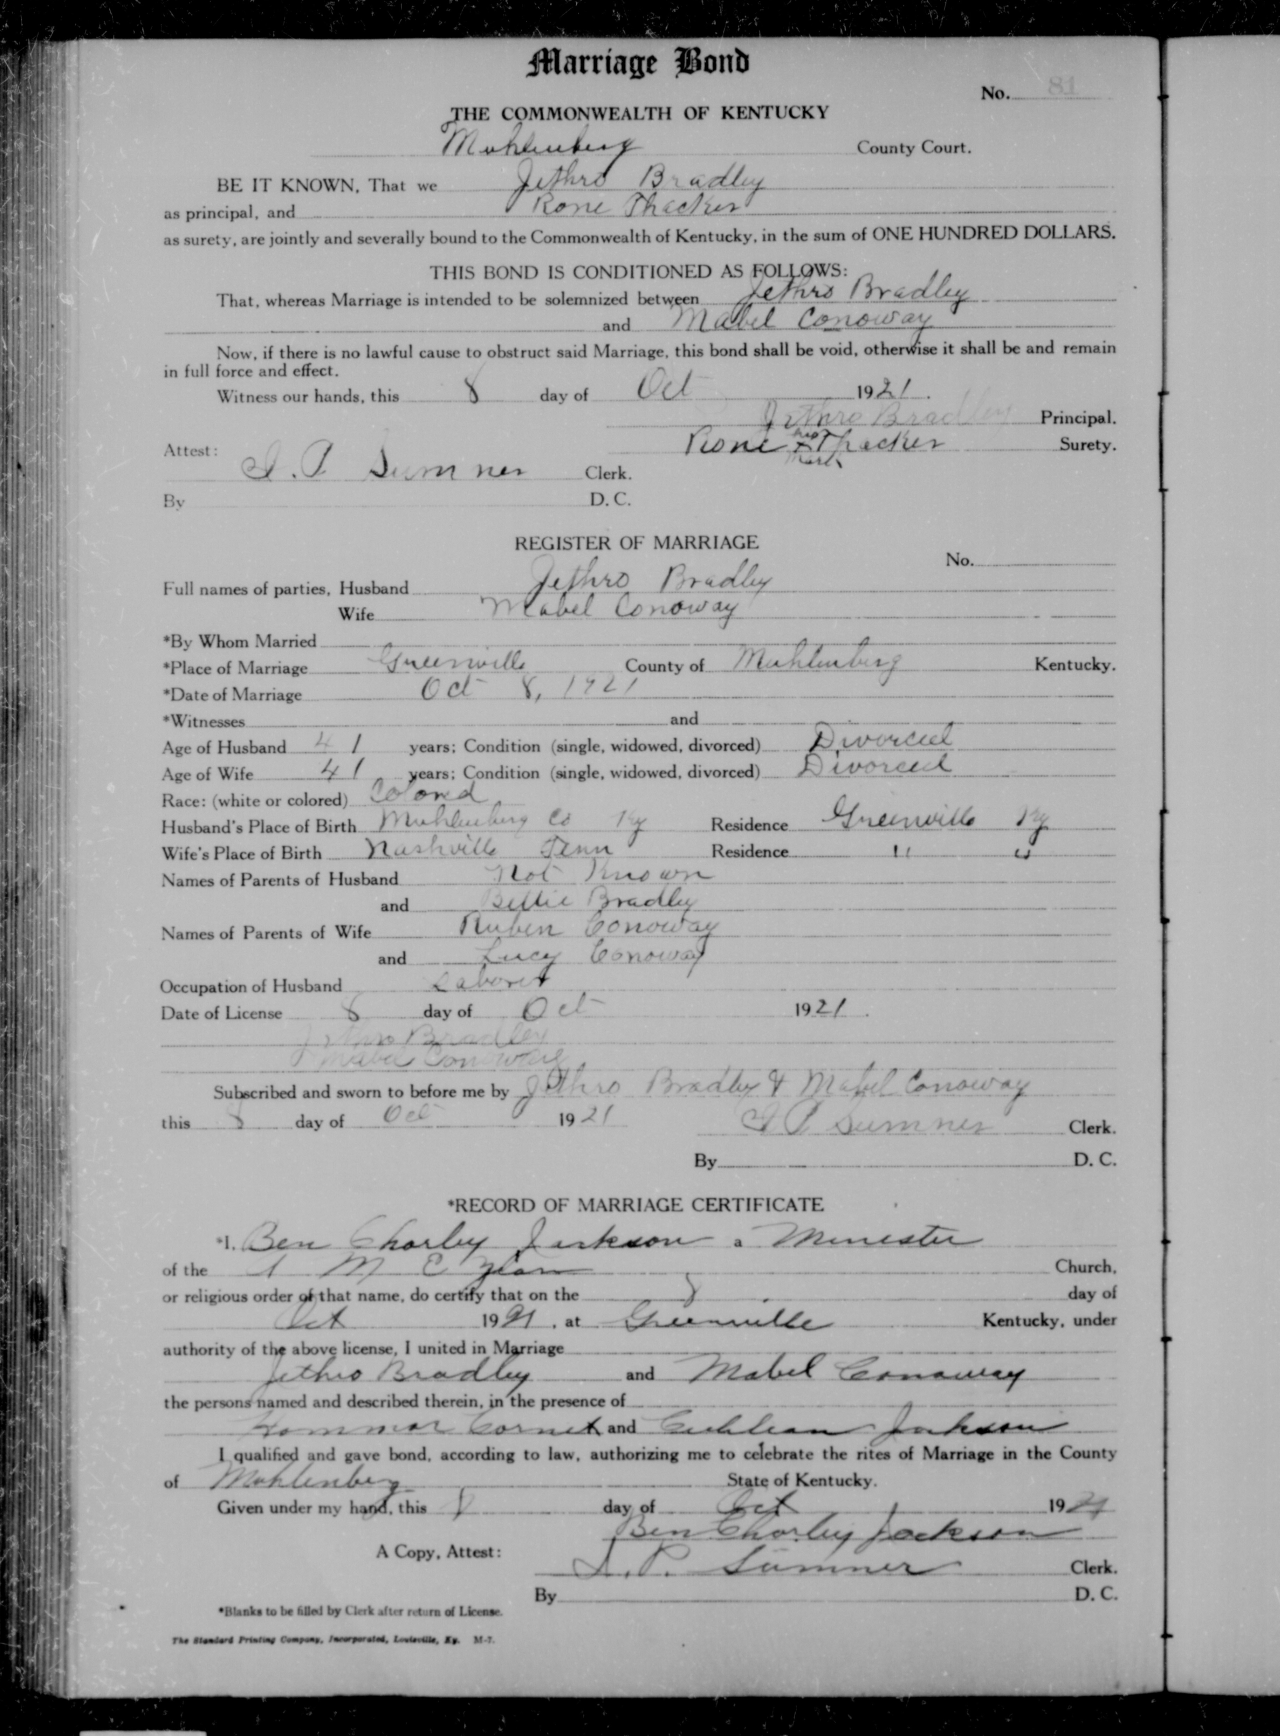 Marriage Bond
No. 81
THE COMMONWEALTH OF KENTUCKY
Muhlenberg County Court.
BE IT KNOWN, That we Jethro Bradley
as principal, and Rone Thacker
as surety, are jointly and severally bound to the Commonwealth of Kentucky, in the sum of ONE HUNDRED DOLLARS.
THIS BOND IS CONDITIONED AS FOLLOWS:
That, whereas Marriage is intended to be solemnized between Jethro Bradley
and Mabel Conoway
Now, if there is no lawful cause to obstruct said Marriage, this bond shall be void, otherwise it shall be and remain
in full force and effect.
Witness our hands, this 8 day of Oct 1921.
Jethro Bradley Principal.
Rone his x mark Thacker Surety.
Attest:
Clerk.
By D. C.
REGISTER OF MARRIAGE
No.
Full names of parties, Husband Jethro Bradley
Wife Mabel Conoway
*By Whom Married
*Place of Marriage Greenville County of Muhlenberg Kentucky.
*Date of Marriage Oct 8, 1921
*Witnesses and
Age of Husband 41 years; Condition (single, widowed, divorced) Divorced
Age of Wife 41 years; Condition (single, widowed, divorced) Divorced
Race: (white or colored) Colored
Husband's Place of Birth Muhlenberg Co Ky Residence Greenville Ky
Wife's Place of Birth Nashville Tenn Residence " "
Names of Parents of Husband Not Known
and Bettie Bradley
Names of Parents of Wife Ruben Conoway
and Lucy Conoway
Occupation of Husband Laborer
Date of License 8 day of Oct 1921.
Jethro Bradley
Mabel Conoway
Subscribed and sworn to before me by Jethro Bradley & Mabel Conoway
this 8 day of Oct 1921 Sumner Clerk.
By D. C.
*RECORD OF MARRIAGE CERTIFICATE
*I, Ben Charley Jackson a Minester
of the A M E Zion Church,
or religious order of that name, do certify that on the 8 day of
Oct 1921, at Greenville Kentucky, under
authority of the above license, I united in Marriage
Jethro Bradley and Mabel Conaway
the persons named and described therein, in the presence of
and Jackson
I qualified and gave bond, according to law, authorizing me to celebrate the rites of Marriage in the County
of Muhlenberg State of Kentucky.
Given under my hand, this 8 day of Oct 1921
Ben Charley Jackson
A Copy, Attest: Sumner Clerk.
By D. C.
*Blanks to be filled by Clerk after return of License.
The Standard Printing Company, Incorporated, Louisville, Ky. M-7.